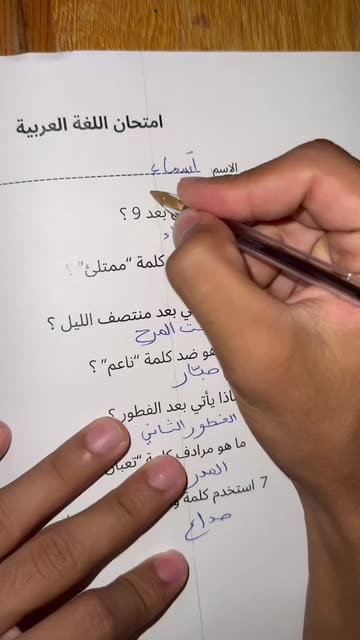 امتحان اللغة العربية
الاسم: أسماء
بعد 9 ؟
كلمة “ممتلئ” ؟
ي بعد منتصف الليل ؟
ت المرح
هو ضد كلمة “ناعم” ؟
صبّار
ماذا يأتي بعد الفطور؟
الفطور الثاني
ما هو مرادف كلمة “تعبان
المدر
7 استخدم كلمة و
صداع